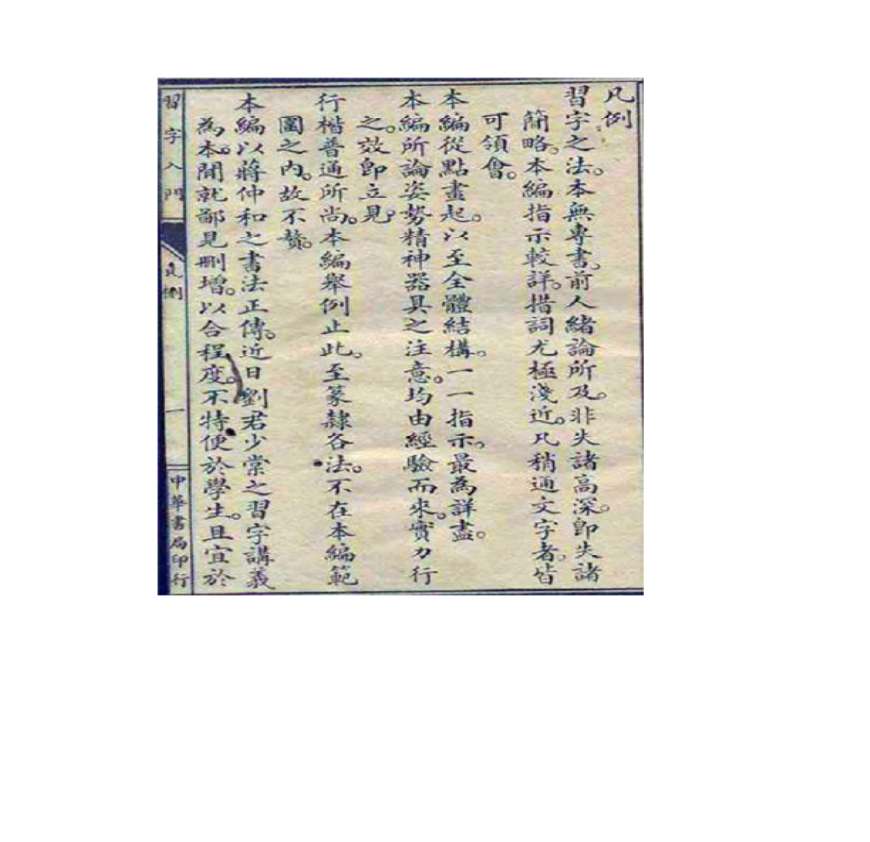 凡例
習字之法。本無專書。前人緒論所及。非失諸高深。即失諸
簡略。本編指示較詳。措詞尤極淺近。凡稍通文字者。皆
可領會。
本編從點畫起。以至全體結構。一一指示。最為詳盡。
本編所論姿勢精神器具之注意。均由經驗而來。實力行
之。效即立見。
行楷普通所尚。本編舉例止此。至篆隸各法。不在本編範
圍之內。故不贅。
本編以蔣仲和之書法正傳。近日劉君少棠之習字講義
為本。間就鄙見刪增。以合程度。不特便於學生。且宜於
習字入門
凡例
一
中華書局印行